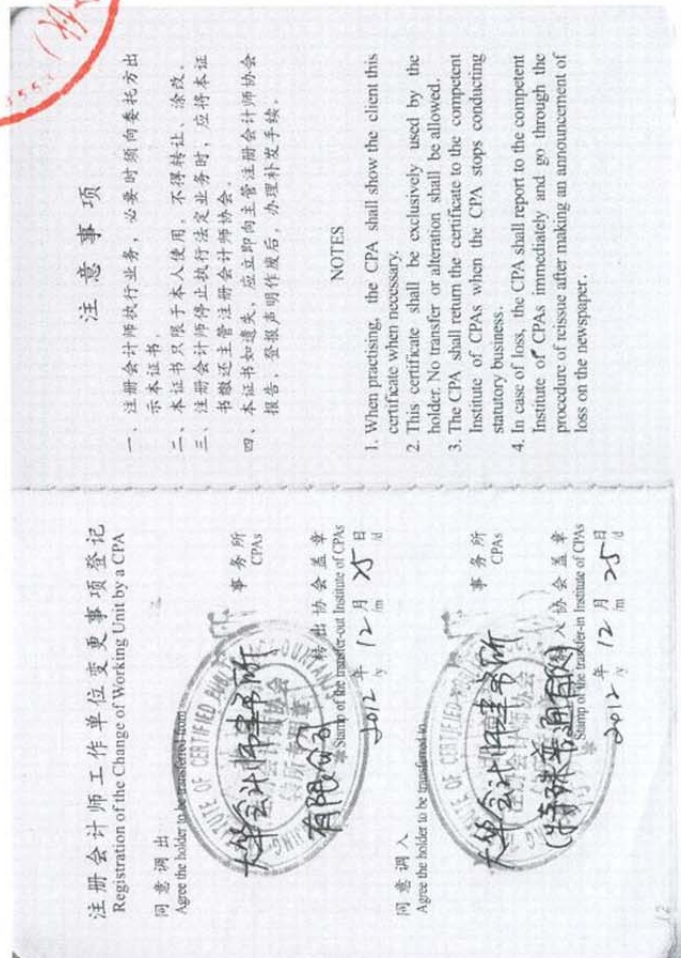 注册会计师工作单位变更事项登记
Registration of the Change of Working Unit by a CPA
同意调出
Agree the holder to be transferred from
大华会计师事务所
有限公司
事务所
CPAs
转出协会盖章
Stamp of the transfer-out Institute of CPAs
2012 年 12 月 25 日
/y /m /d
同意调入
Agree the holder to be transferred to
大华会计师事务所
(特殊普通合伙)
事务所
CPAs
转入协会盖章
Stamp of the transfer-in Institute of CPAs
2012 年 12 月 25 日
/y /m /d
12
注意事项
一、注册会计师执行业务，必要时须向委托方出
示本证书。
二、本证书只限于本人使用，不得转让、涂改。
三、注册会计师停止执行法定业务时，应将本证
书缴还主管注册会计师协会。
四、本证书如遗失，应立即向主管注册会计师协会
报告，登报声明作废后，办理补发手续。
NOTES
1. When practising, the CPA shall show the client this
certificate when necessary.
2. This certificate shall be exclusively used by the
holder. No transfer or alteration shall be allowed.
3. The CPA shall return the certificate to the competent
Institute of CPAs when the CPA stops conducting
statutory business.
4. In case of loss, the CPA shall report to the competent
Institute of CPAs immediately and go through the
procedure of reissue after making an announcement of
loss on the newspaper.